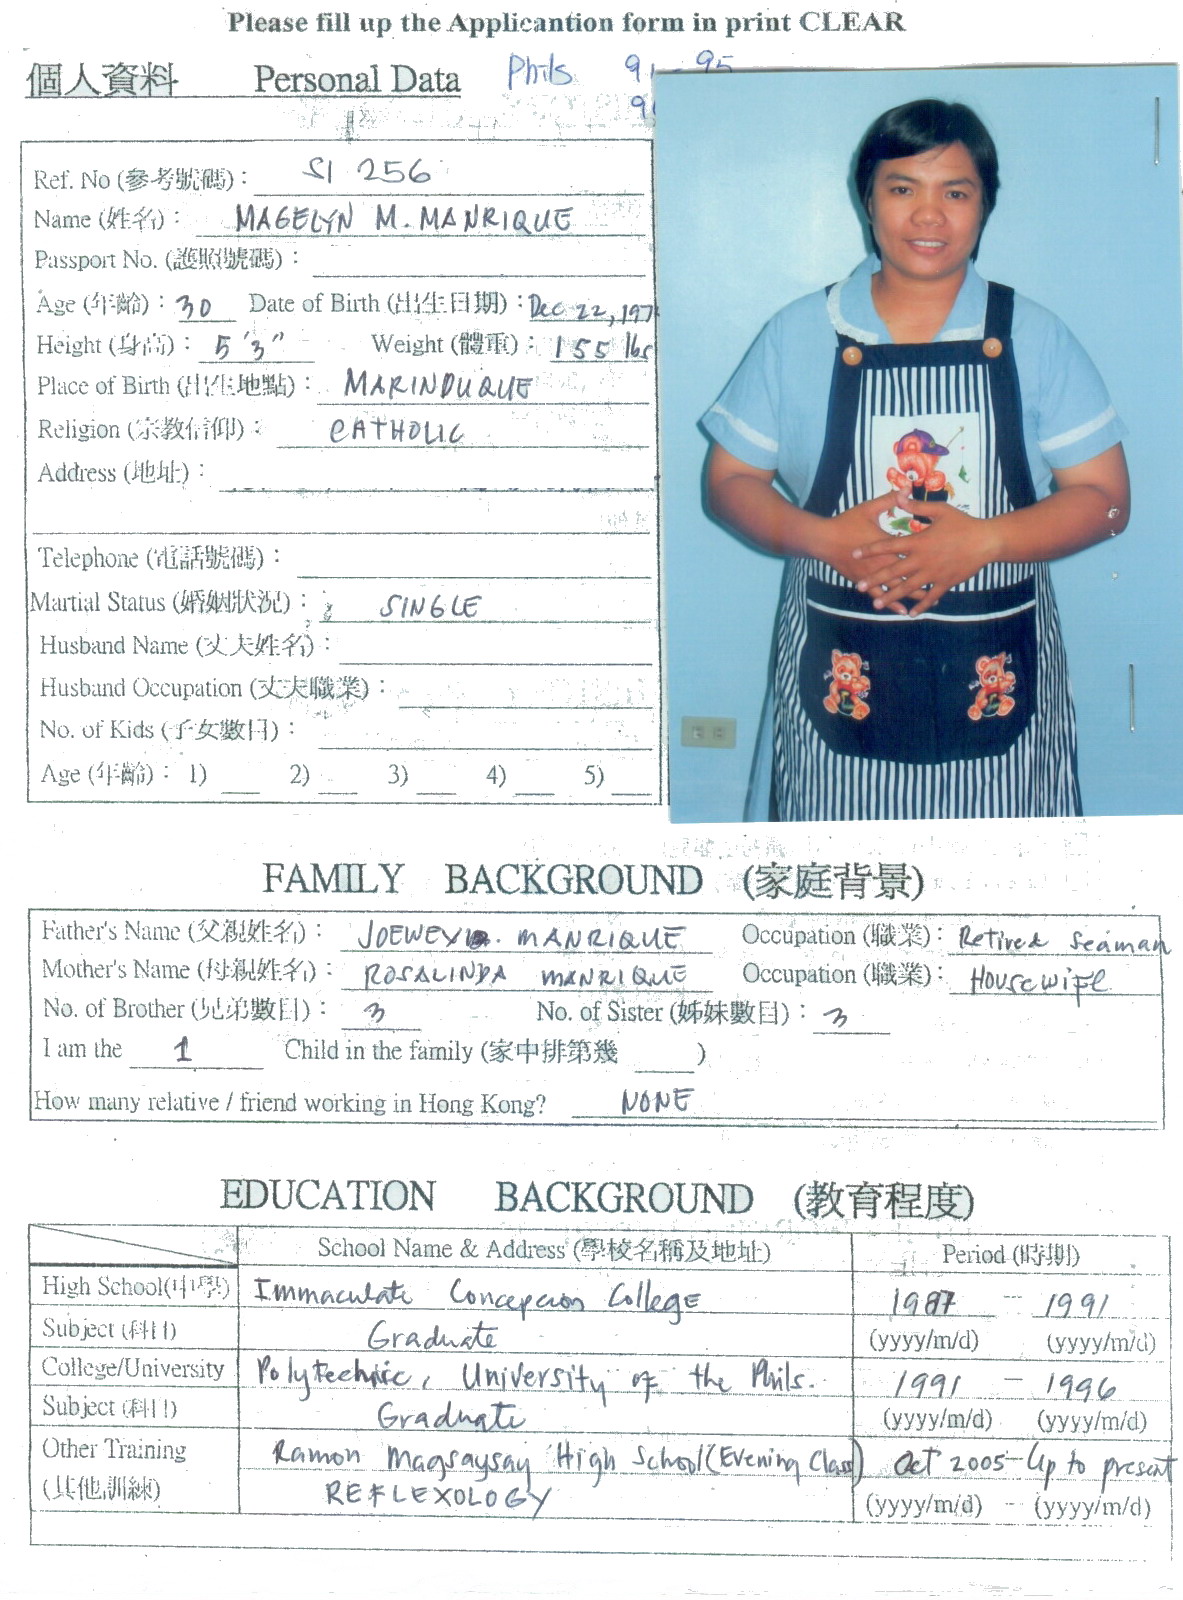 Please fill up the Applicantion form in print CLEAR
個人資料 Personal Data Phils 91-95
Ref. No (參考號碼): SI 256
Name (姓名): MAGELYN M. MANRIQUE
Passport No. (護照號碼):
Age (年齡): 30 Date of Birth (出生日期): Dec 22, 197
Height (身高): 5'3" Weight (體重): 155 lbs
Place of Birth (出生地點): MARINDUQUE
Religion (宗教信仰): CATHOLIC
Address (地址):
Telephone (電話號碼):
Martial Status (婚姻狀況): SINGLE
Husband Name (丈夫姓名):
Husband Occupation (丈夫職業):
No. of Kids (子女數目):
Age (年齡): 1) 2) 3) 4) 5)
FAMILY BACKGROUND (家庭背景)
Father's Name (父親姓名): MANRIQUE Occupation (職業): Retired Seaman
Mother's Name (母親姓名): ROSALINDA MANRIQUE Occupation (職業): Housewife
No. of Brother (兄弟數目): 3 No. of Sister (姊妹數目): 3
I am the 1 Child in the family (家中排第幾 )
How many relative / friend working in Hong Kong? NONE
EDUCATION BACKGROUND (教育程度)
School Name & Address (學校名稱及地址) Period (時期)
High School(中學) Immaculate Concepcion College 1987 - 1991
Subject (科目) Graduate (yyyy/m/d) (yyyy/m/d)
College/University Polytechnic, University of the Phils. 1991 - 1996
Subject (科目) Graduate (yyyy/m/d) (yyyy/m/d)
Other Training Ramon Magsaysay High School (Evening Class) Oct 2005 - Up to present
(其他訓練) REFLEXOLOGY (yyyy/m/d) - (yyyy/m/d)